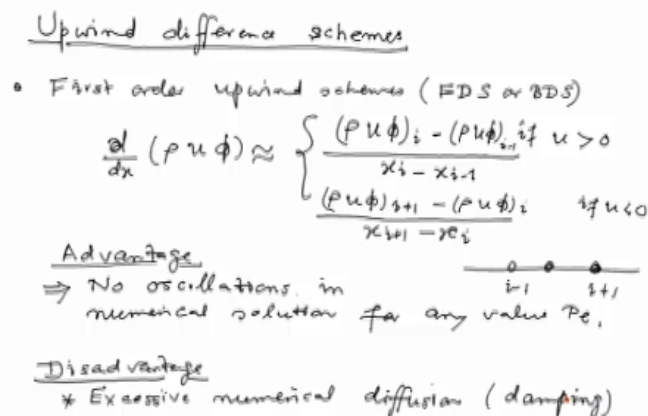 Upwind difference schemes
• First order upwind schemes (FDS or BDS)
d/dx (ρuφ) ≈ { ((ρuφ)_i - (ρuφ)_{i-1}) / (x_i - x_{i-1}) if u > 0
((ρuφ)_{i+1} - (ρuφ)_i) / (x_{i+1} - x_i) if u < 0
Advantage
⇒ No oscillations in
i-1 i+1
numerical solution for any value Pe.
Disadvantage
* Excessive numerical diffusion (damping)